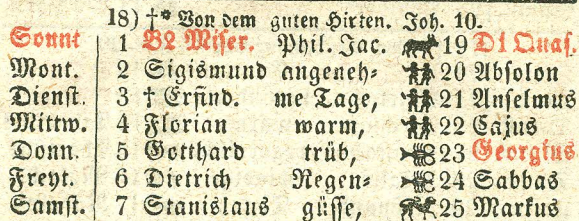 18) †* Von dem guten Hirten. Joh. 10.
Sonnt 1 B2 Miser. Phil. Jac. 19 D1 Quas.
Mont. 2 Sigismund angeneh= 20 Absolon
Dienst. 3 † Erfind. me Tage, 21 Anselmus
Mittw. 4 Florian warm, 22 Cajus
Donn. 5 Gotthard trüb, 23 Georgius
Freyt. 6 Dietrich Regen= 24 Sabbas
Samst. 7 Stanislaus güsse, 25 Markus